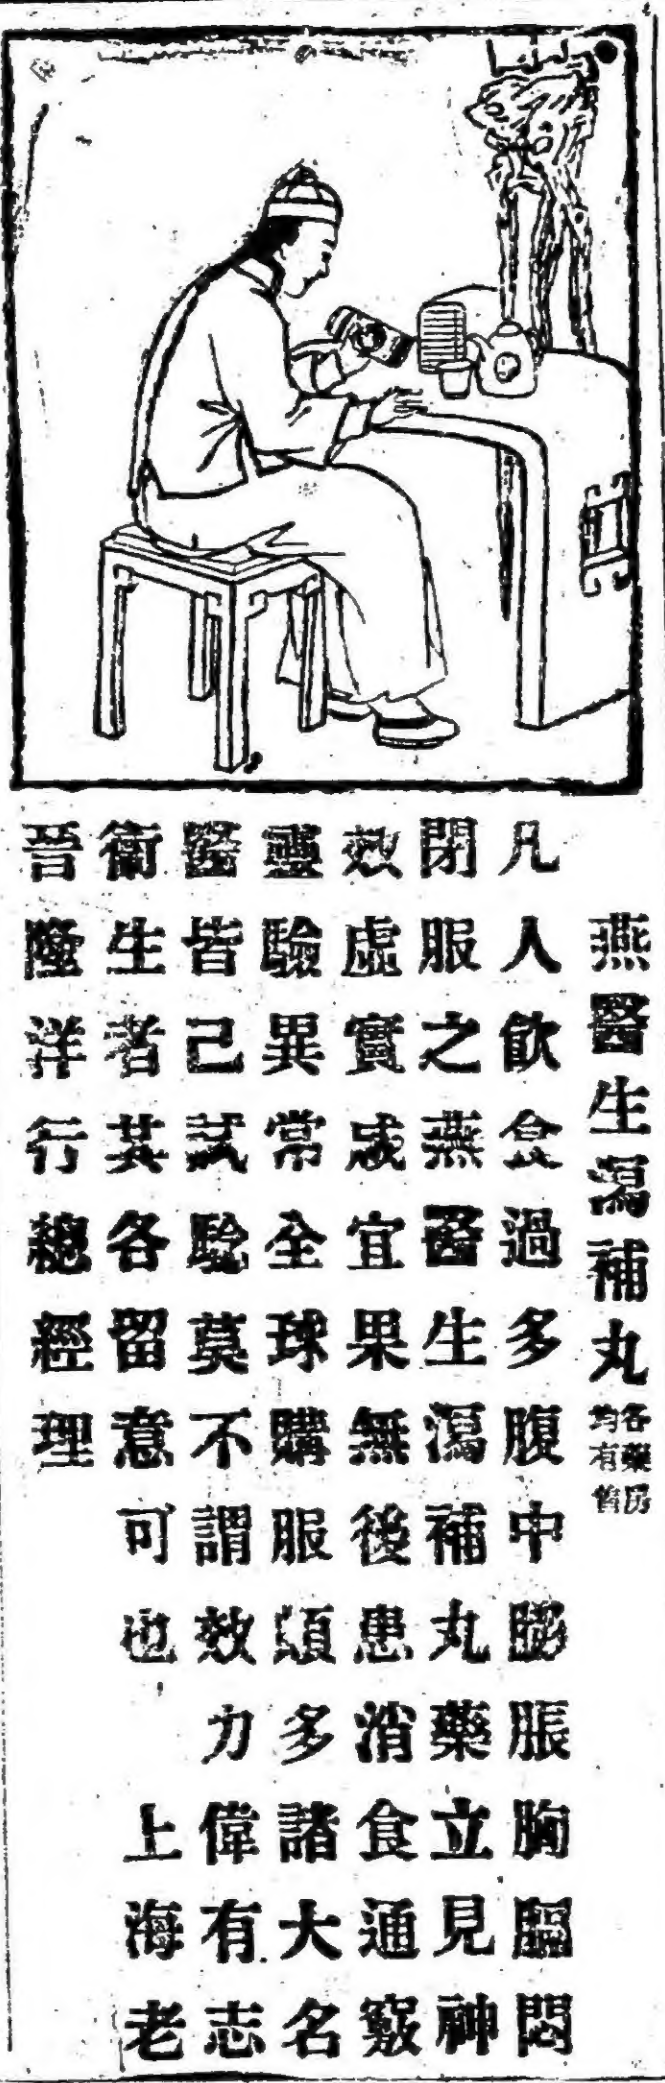 燕醫生瀉補丸
各藥房
均有售
凡人飲食過多腹中膨脹胸膈悶
閉服之燕醫生瀉補丸藥立見神
效虛實咸宜果無後患消食通竅
靈驗異常全球購服頗多諸大名
醫皆己試驗莫不謂效力偉有志
衛生者其各留意可也 上海老
晉隆洋行總經理